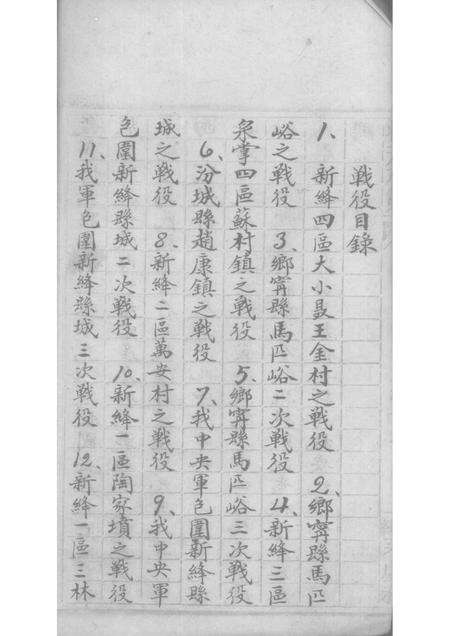 戰役目錄
1、新絳四區大小聶王金村之戰役 2、鄉寧縣馬匹
峪之戰役 3、鄉寧縣馬匹峪二次戰役 4、新絳三區
泉掌四區蘇村鎮之戰役 5、鄉寧縣馬匹峪三次戰役
6、汾城縣趙康鎮之戰役 7、我中央軍包圍新絳縣
城之戰役 8、新絳二區萬安村之戰役 9、我中央軍
包圍新絳縣城二次戰役 10、新絳一區陶家墳之戰役
11、我軍包圍新絳縣城三次戰役 12、新絳一區三林